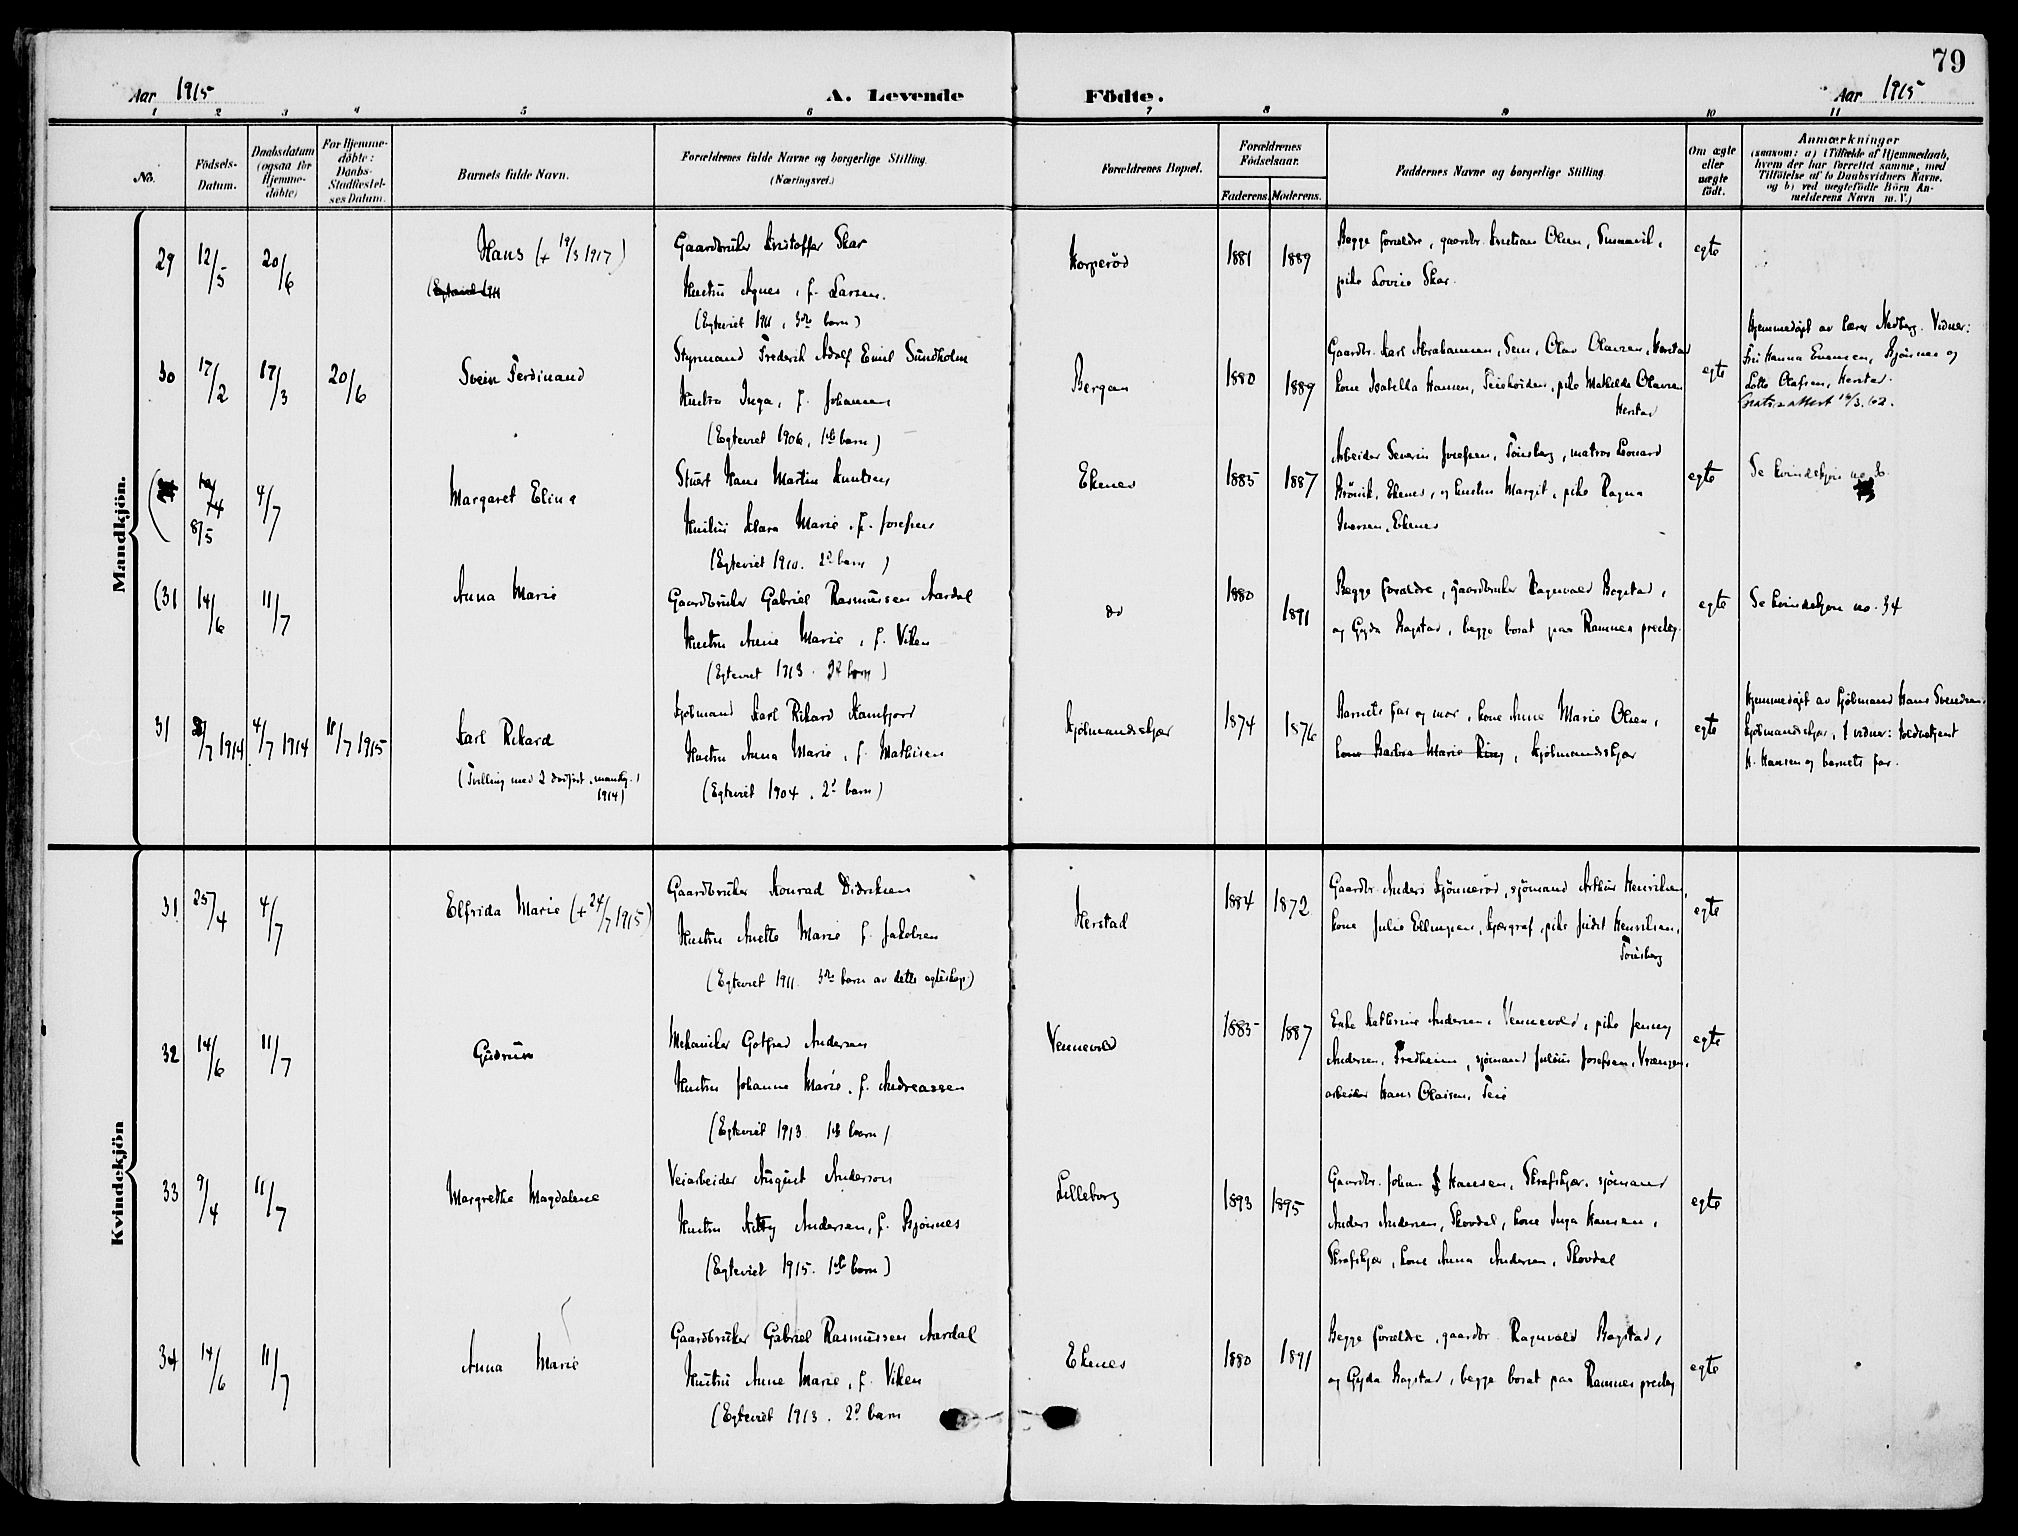 79
Aar 1915
A. Levende Födte.
Aar 1915
1 2 3 4 5 6 7 8 9 10 11
No.
Födsels-
Datum.
Daabsdatum
(ogsaa for
Hjemme-
döbte)
For Hjemme-
döbte:
Daabs-
Stadfæstel-
ses Datum.
Barnets fulde Navn.
Forældrenes fulde Navne og borgerlige Stilling.
(Næringsvei.)
Forældrenes Bopæl.
Forældrenes
Födselsaar.
Faderens. Moderens.
Faddernes Navne og borgerlige Stilling.
Om ægte
eller
uægte
födt.
Anmærkninger
(saasom: a) i Tilfælde af Hjemmedaab,
hvem der har forrettet samme, med
Tilföielse af to Daabsvidners Navne,
og b) ved uægtefödte Börn An-
melderens Navn m. V.)
Mandkjön.
29 12/5 20/6
Hans (+ 19/3 1917)
Gaardbruker Kristoffer Skar
Hustru Agnes, f. Larsen.
(Egteviet 1911, 3die barn)
Korperød
1881 1889
Begge forældre, gaardbr. Kristian Olsen,
pike Lovise Skar.
egte
30 17/2 17/3 20/6
Svein Ferdinand
Styrmand Frederik Adolf Emil Sundholm
Hustru Inga, f. Johansen
(Egteviet 1906, 1ste barn)
Bergan
1880 1889
Gaardbr. Karl Abrahamsen, Sem, Olav Olavsen, Herstad
kone Isabella Hansen, pike Mathilde Olavsen
Herstad
egte
Hjemmedøpt av lærer Nedberg. Vidner:
Fru Hanna Evensen, Bjønnes og
Lotte Olafsen, Herstad.
8/5 4/7
Margaret Elina
Stuert Hans Martin Knutsen
Hustru Klara Marie, f. Josefsen
(Egteviet 1910. 2d barn)
Ekenes
1885 1887
Arbeider Severin Josefsen, Tønsberg, matros Leonard
Brönik, Ekenes, og hustru Margit, pike Ragna
Iversen, Ekenes
egte
Se kvindekjøn no.
(31 14/6 11/7
Anna Marie
Gaardbruker Gabriel Rasmussen Aardal
Hustru Anne Marie, f. Viken
(Egteviet 1913. 2d barn)
do
1880 1891
Begge forældre, gaardbruker Ragnvald Bogstad,
og Gyda Bogstad, begge bosat paa Ramnes presteg.
egte
Se kvindekjøn no. 34
31 /7 1914 4/7 1914 11/7 1915
Karl Rikard
(Tvilling med 2 dødfødt, mandkj.,
1914)
Sjømand Karl Rikard Kamfjord
Hustru Anna Marie, f. Mathisen
(Egteviet 1904, 2d barn)
Kjølmandskjær
1874 1876
Barnets far og mor, kone Anne Marie Olsen,
kone Barbra Marie Ring, Kjølmandsskjær
egte
Hjemmedøpt av Sjømand Hans Svendsen,
Kjølmandskjær, 2 vidner:
H. Hansen og barnets far.
Kvindekjön
31 25/4 4/7
Elfrida Marie (+ 24/7 1915)
Gaardbruker Konrad Didriksen
Hustru Anette Marie f. Jakobsen
(Egteviet 1911. 3die barn av dette egteskap)
Herstad
1884 1872
Gaardbr. Anders Kjønnerød, sjømand Arthur Henriksen,
kone Julie Ellingsen, Kjærgraf, pike Judit Henriksen,
Tønsberg
egte
32 14/6 11/7
Gudrun
Mekaniker Gotfred Andersen
Hustru Johanne Marie, f. Andreassen
(Egteviet 1913 1ste barn)
Vennevold
1885 1887
Enke Katherine Andersen, Vennevold, pike Jenny
Andersen, Fredheim, sjømand Julius Josefsen, Vrængen,
arbeider Hans Olaisen, Teie
egte
33 9/4 11/7
Margrethe Magdalene
Veiarbeider August Anderson
Hustru Andersen, f. Bjønnes
(Egteviet 1915. 1ste barn)
Lilleborg
1893 1895
Gaardbr. Johan Hansen, Skrafskjær, sjømand
Anders Andersen, Skovdal, kone Inga Hansen,
Skrafskjær, kone Anna Andersen, Skovdal
egte
34 14/6 11/7
Anna Marie
Gaardbruker Gabriel Rasmussen Aardal
Hustru Anne Marie, f. Viken
(Egteviet 1913. 2d barn
Ekenes
1880 1891
Begge forældre, gaardbr. Ragnvald Bogstad,
og Gyda Bogstad, begge bosat paa Ramnes presteg
egte